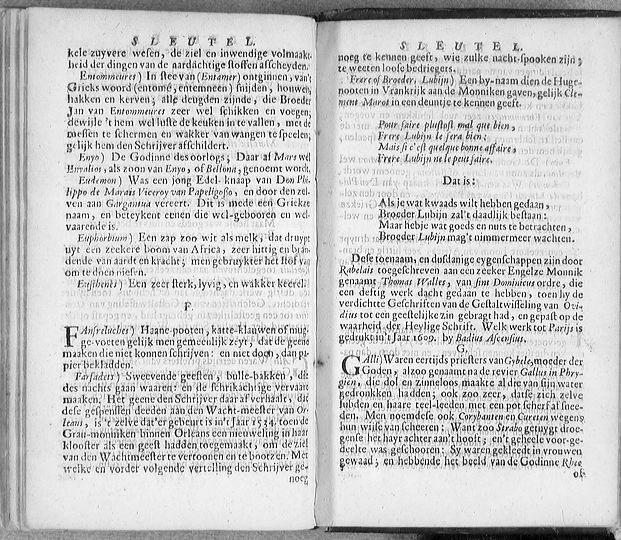 SLEUTEL.
kele zuyvere wesen, de ziel en inwendige volmaakt-
heid der dingen van de aardachtige stoffen afscheyden.
Entommeures) In stee van (Entamer) ontginnen, van't
Grieks woord (entomé, entemneen) snijden, houwen,
hakken en kerven; alle deugden zijnde, die Broeder
Jan van Entommeures zeer wel schikken en voegen;
dewijle 't hem wel luste de keuken in te vallen, met de
messen te schermen en wakker van wangen te speelen,
gelijk hem den Schrijver afschildert.
Enyo) De Godinne des oorlogs; Daar af Mars wel
Enyalios, als zoon van Enyo, of Bellona, genoemt wordt.
Eudemon) Was een jong Edel-knaap van Don Phi-
lippo de Marais Viceroy van Papeligosa, en door den zel-
ven aan Gargantua vereert. Dit is mede een Griekze
naam, en beteykent eenen die wel-gebooren en wel-
vaarende is.
Euphorbium) Een zap zoo wit als melk, dat druypt
uyt een zeekere boom van Africa, zeer hittig en bran-
dende van aardt en kracht; men gebruykter het stof van
om te doen niesen.
Eusthenes) Een zeer sterk, lyvig, en wakker keerel.
F
FAnfreluches) Haane-pooten, katte-klauwen of mug-
ge-vooten gelijk men gemeenlijk zeyt, dat de geene
maaken die niet konnen schrijven: en niet doen, dan pa-
pier bekladden.
Farfadets) Sweevende geesten, bulle-bakken, die
des nachts gaan waaren: en de schrikachtige vervaart
maaken. Het geene den Schrijver daar af verhaalt, dat
dese gespensen deeden aan den Wacht-meester van Or-
leans, is 't zelve dat'er gebeurt is in't Jaar 1534. toen de
Grau-monniken binnen Orleans een nieuweling in haar
klooster als een geest hadden toegemaakt, om de ziel
van den Wachtmeester te vertoonen en te bootzen. Met
welke en vorder volgende vertelling den Schrijver ge-
noeg
SLEUTEL.
noeg te kennen geeft, wie zulke nacht-spooken zijn;
te weeten loose bedriegers.
Frere of Broeder, Lubijn) Een by-naam dien de Huge-
nooten in Vrankrijk aan de Monniken gaven, gelijk Cle-
ment Marot in een deuntje te kennen geeft.
Pour faire plustost mal que bien,
Frere Lubijn le fera bien;
Mais si c'est quelque bonne affaire,
Frere Lubijn ne le peut faire.
Dat is:
Als je wat kwaads wilt hebben gedaan,
Broeder Lubijn zal't daadlijk bestaan:
Maar hebje wat goeds en nuts te betrachten,
Broeder Lubijn mag't nimmermeer wachten.
Dese toenaam, en dusdanige eygenschappen zijn door
Rabelais toegeschreven aan een zeeker Engelze Monnik
genaamt Thomas Walles, van sint Dominicus ordre, die
een deftig werk dacht gedaan te hebben, toen hy de
verdichte Geschriften van de Gestaltwisseling van Ovi-
dius tot een geestelijke zin gebragt had, en gepast op de
waarheid der Heylige Schrift. Welk werk tot Parijs is
gedrukt in't Jaar 1609. by Badius Ascensius.
G.
GAlli) Waren eertijds priesters van Cybele, moeder der
Goden, alzoo genaamt na de revier Gallus in Phry-
gien, die dol en zinneloos maakte al die van sijn water
gedronkken hadden; ook zoo zeer, datse zich zelve
lubden en haare teel-leeden met een pot scherf af snee-
den. Men noemdese ook Corybanten en Cureten wegens
hun wijse van scheeren: Want zoo Strabo getuygt droe-
gense het hayr achter aan't hooft; en't geheele voor-ge-
deelte was geschooren: Sy waren gekleedt in vrouwen
gewaad; en hebbende het beeld van de Godinne Rhee
ok